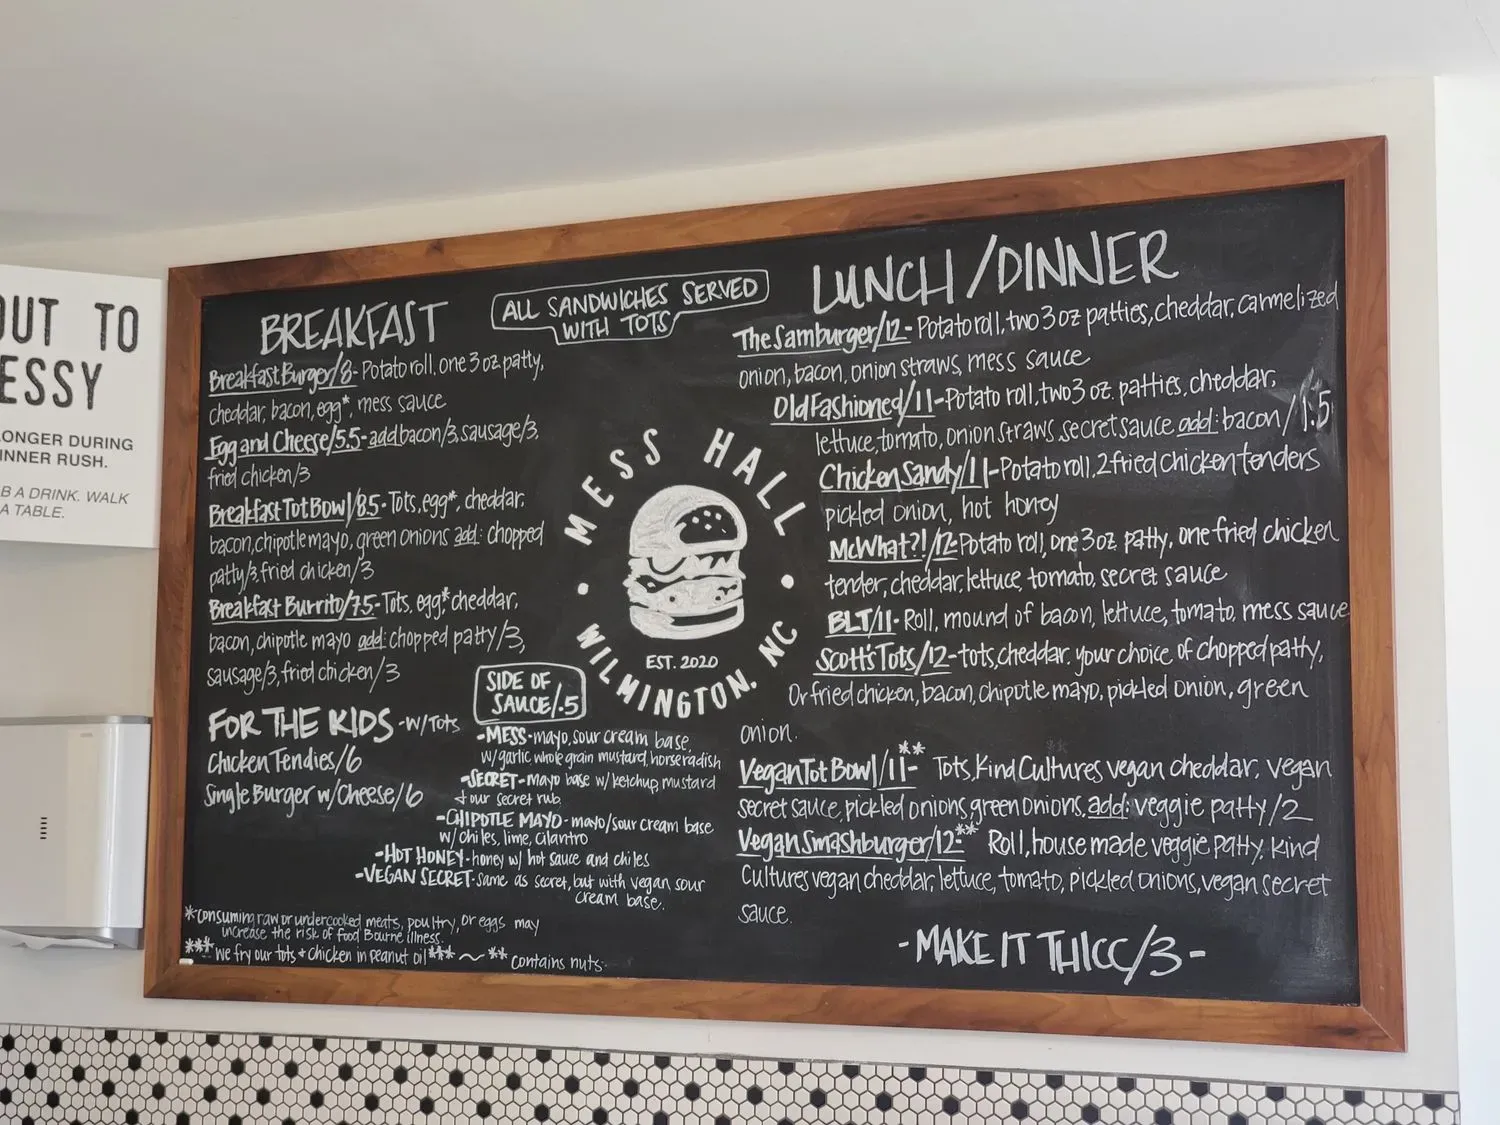 OUT TO
ESSY
ONGER DURING
INNER RUSH.
B A DRINK. WALK
A TABLE.
BREAKFAST
Breakfast Burger/8- Potato roll, one 3 oz patty,
cheddar, bacon, egg*, mess sauce
Egg and Cheese/5.5- add bacon/3, sausage/3,
fried chicken/3
Breakfast Tot Bowl/8.5- Tots, egg*, cheddar,
bacon, chipotle mayo, green onions add: chopped
patty/3, fried chicken/3
Breakfast Burrito/7.5- Tots, egg*, cheddar,
bacon, chipotle mayo add: chopped patty/3,
sausage/3, fried chicken/3
FOR THE KIDS -W/TOTS
Chicken Tendies/6
Single Burger w/Cheese/6
ALL SANDWICHES SERVED
WITH TOTS
MESS HALL
EST. 2020
WILMINGTON, NC
SIDE OF
SAUCE/.5
-MESS- mayo, sour cream base,
w/garlic whole grain mustard, horseradish
-SECRET- mayo base w/ ketchup, mustard
+ our secret rub.
-CHIPOTLE MAYO- mayo/sour cream base
w/ chiles, lime, cilantro
-HOT HONEY- honey w/ hot sauce and chiles
-VEGAN SECRET- same as secret, but with vegan sour
cream base.
*consuming raw or undercooked meats, poultry, or eggs may
increase the risk of food Bourne illness.
*** we fry our tots + chicken in peanut oil *** ~ ** contains nuts.
LUNCH/DINNER
The Samburger/12- Potato roll, two 3 oz patties, cheddar, carmelized
onion, bacon, onion straws, mess sauce
Old Fashioned/11- Potato roll, two 3 oz. patties, cheddar,
lettuce, tomato, onion straws, secret sauce add: bacon/1.5
Chicken Sandy/11- Potato roll, 2 fried chicken tenders
pickled onion, hot honey
McWhat?!/12- Potato roll, one 3 oz patty, one fried chicken
tender, cheddar, lettuce, tomato, secret sauce
BLT/11- Roll, mound of bacon, lettuce, tomato, mess sauce
Scott's Tots/12- tots, cheddar, your choice of chopped patty,
Or fried chicken, bacon, chipotle mayo, pickled onion, green
onion.
Vegan Tot Bowl/11-** Tots, Kind Cultures vegan cheddar, vegan
secret sauce, pickled onions, green onions, add: veggie patty/2
Vegan Smashburger/12-** Roll, house made veggie patty, Kind
Cultures vegan cheddar, lettuce, tomato, pickled onions, vegan secret
sauce.
-MAKE IT THICC/3-